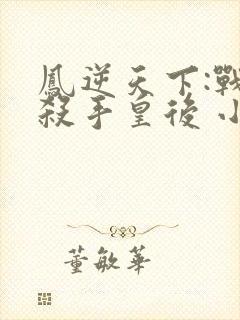 鳳逆天下:戰
殺手皇後 小
董敏華